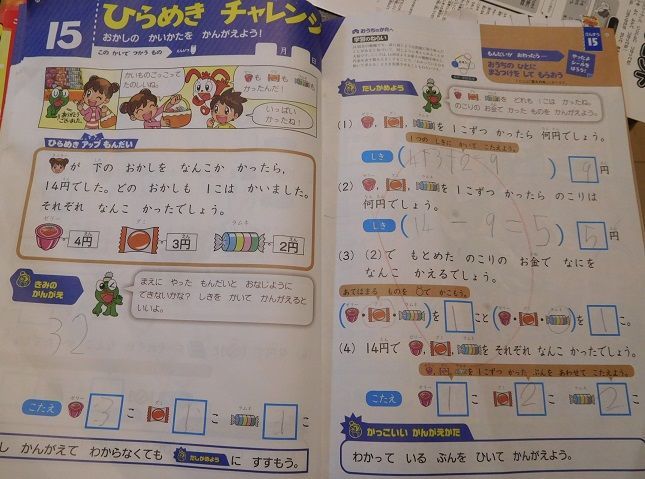 15
ひらめき チャレンジ
おかしの かいかたを かんがえよう！
この かいで つかう もの
えんぴつ
月 日
ありがとう
ございました。
かいものごっこって
たのしいね。
も も も
かったんだ！
いっぱい
かったね！
ひらめき アップ もんだい
が 下の おかしを なんこか かったら、
14円でした。どの おかしも 1こは かいました。
それぞれ なんこ かったでしょう。
ゼリー 4円 アメ 3円 ラムネ 2円
きみの
かんがえ
まえに やった もんだいと おなじように
できないかな？ しきを かいて かんがえると
いいよ。
32
こたえ ゼリー 3 アメ 1 ラムネ 1
し かんがえて わからなくても たしかめよう に すすもう。
おうちのかたへ
学習のねらい
もんだいが おわったら…
おうちの ひとに
まるつけを して もらおう
やったよ
シールを
はろう！
さんすう
15
たしかめよう
どれも 1こは かったね。
のこりの お金で かった ものを かんがえよう。
(1) 、 、 を 1こずつ かったら 何円でしょう。
1つの しきに かいて こたえよう。
しき ( 4+3+2=9 ) 9 円
(2) 、 、 を 1こずつ かったら のこりは
何円でしょう。
しき ( 14-9=5 ) 5 円
(3) (2)で もとめた のこりの お金で なにを
なんこ かえるでしょう。
あてはまる ものを ○で かこもう。
( ・ ・ )を 1 こと ( ・ ・ )を 1 こ。
(4) 14円で 、 、 を それぞれ なんこ かったでしょう。
、 、 を 1こずつ かった ぶんを あわせて こたえよう。
こたえ ゼリー 1 アメ 2 ラムネ 2
かっこいい かんがえかた
わかって いる ぶんを ひいて かんがえよう。